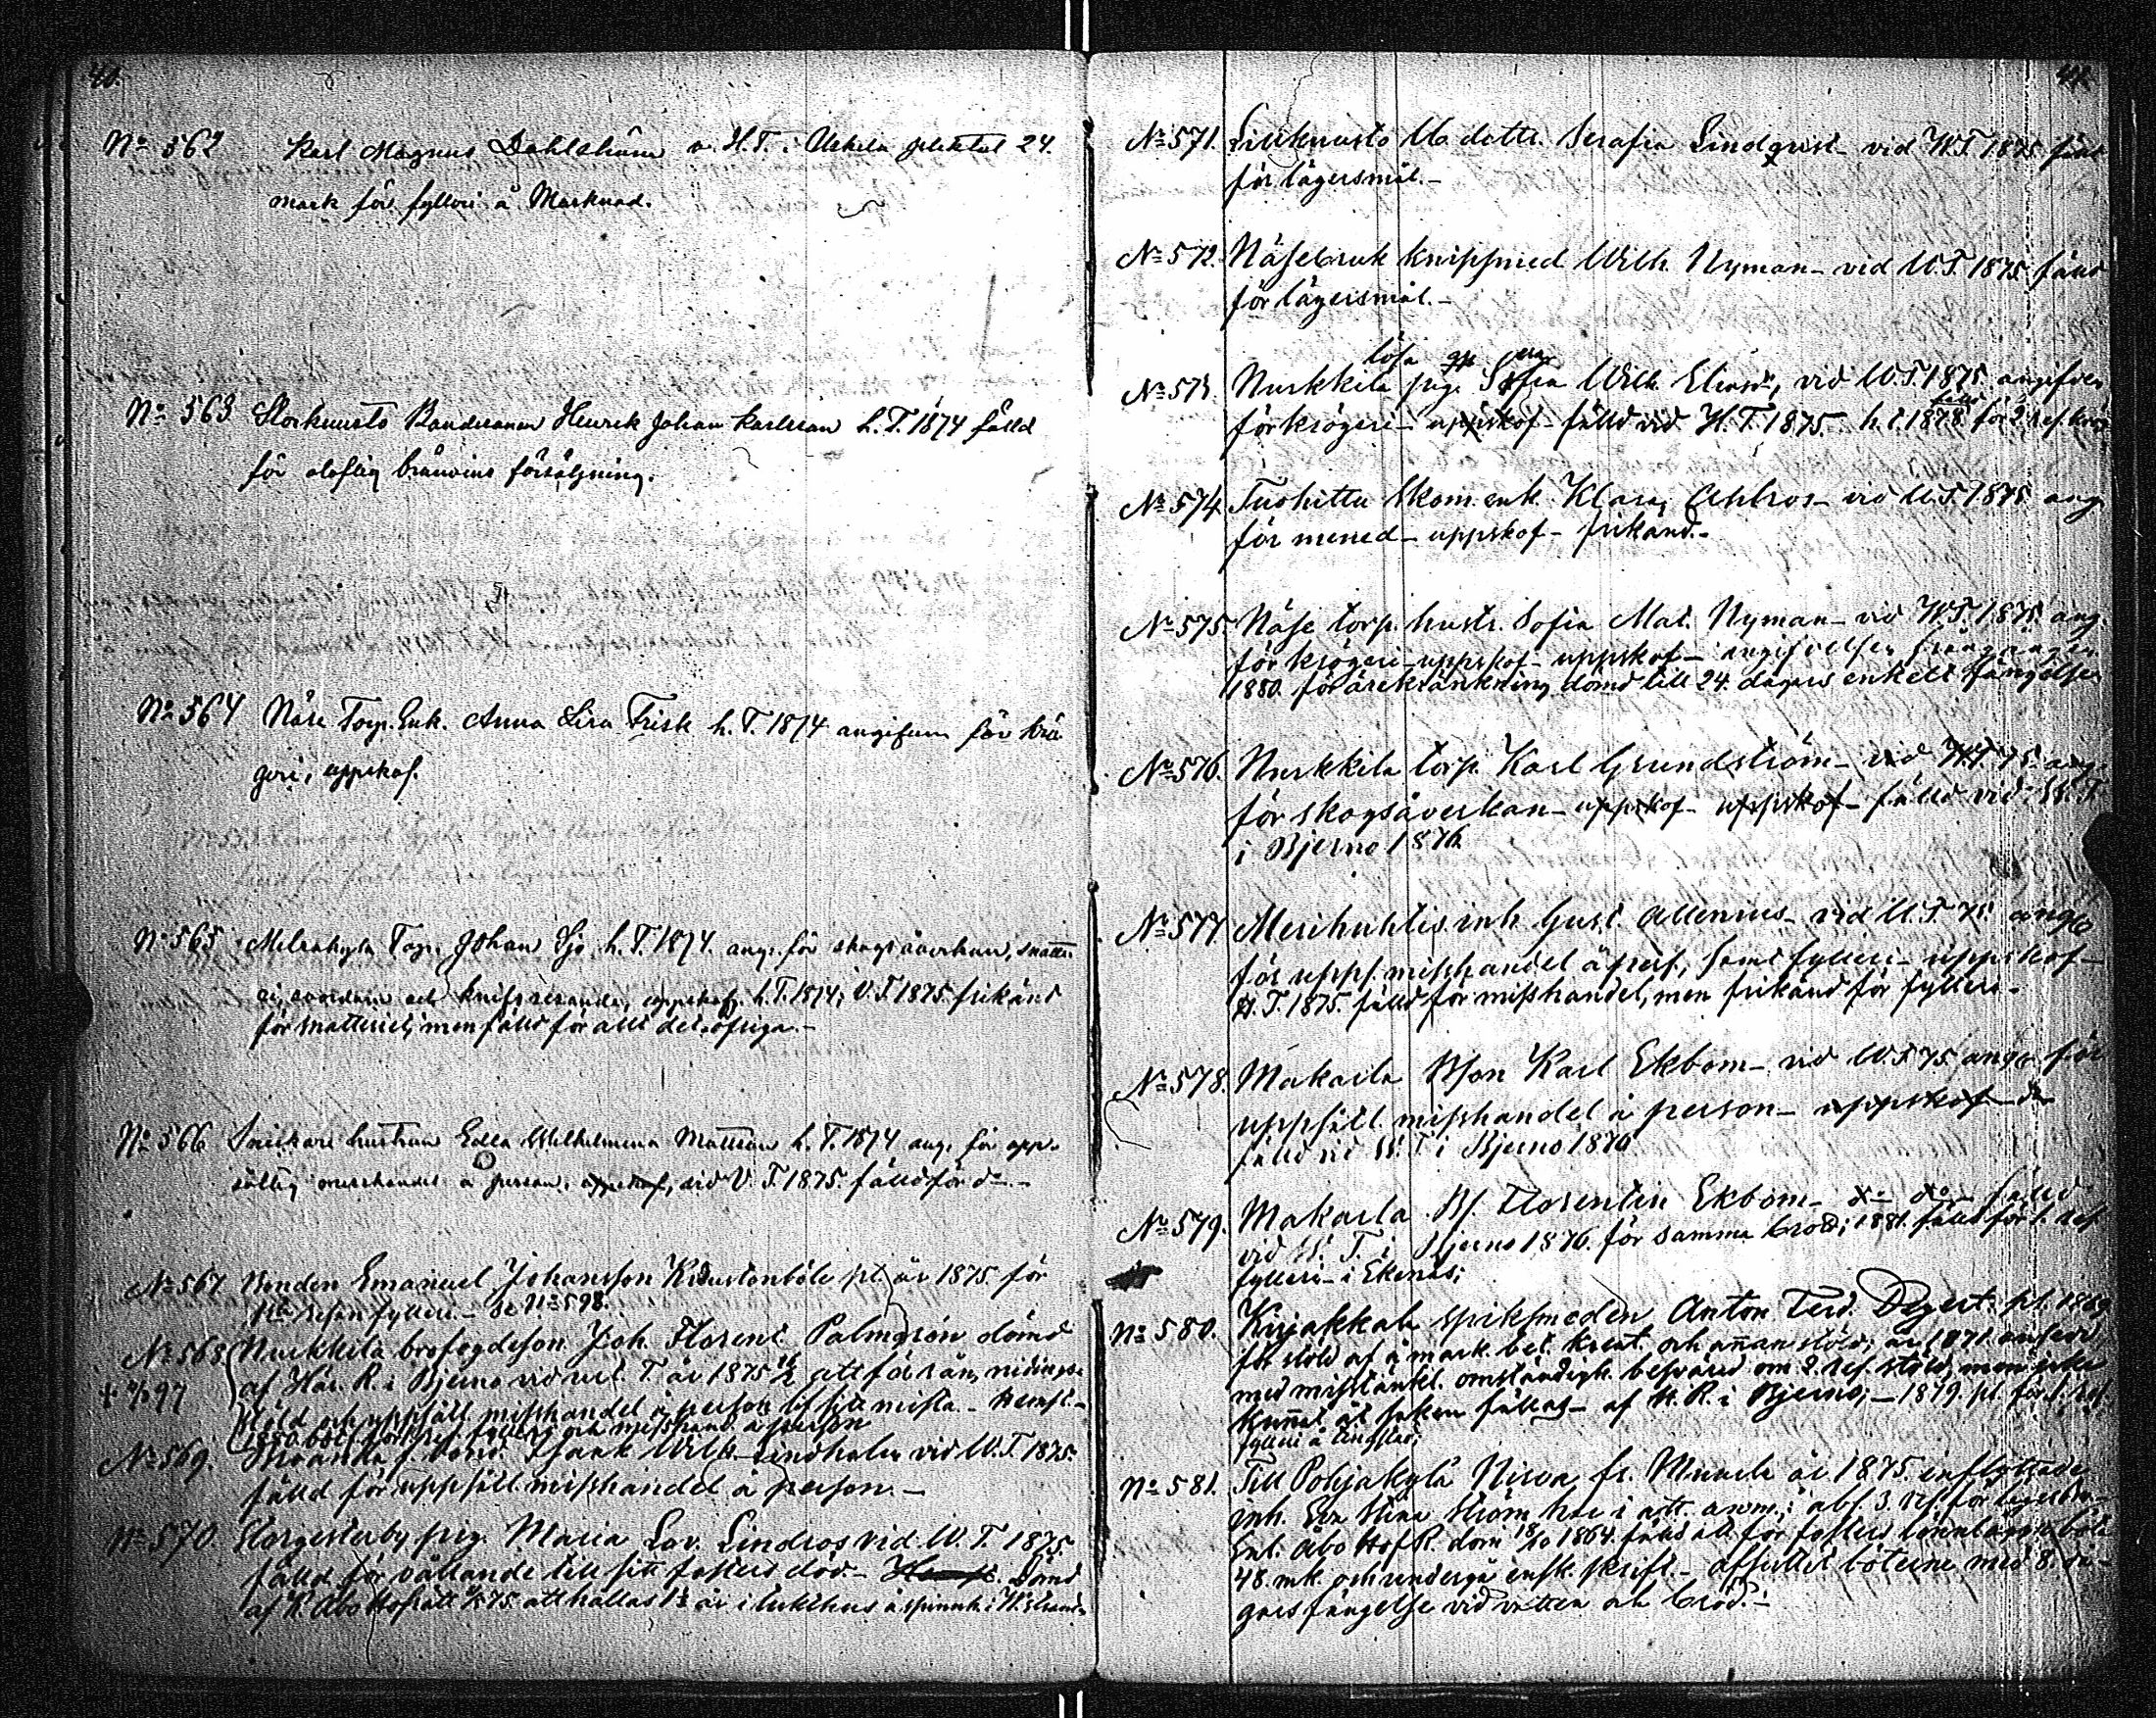 40.
No 562 Karl Magnus Dahlström v. H.T. i Uskela pliktat 24.
mark för fylleri å Marknad.
No 563 Storkuusto Bondesonen Henrik Johan Karlsson h.T. 1874 fälld
för oloflig bränvins försäljning.
No 564 Näse Torp. Enk. Anna Lisa Frisk h.T. 1874 angifven för krö
geri, uppskof.
No 565 Torp. Johan Sjö h.T. 1874. angr. för skogsåverkan, snatte-
ri, svordom och knifs uppskof, h.T. 1874; V.T. 1875 frikänd
för snatteriet, men fälld för allt det öfriga.-
No 566 Snickare hustrun Edla Wilhelmina Mattsson h.T. 1874 ang. för upp-
såtlig misshandel å person, uppskof, vid V.T. 1875. fälld för do.-
No 567 Bonden Emanuel Johansson pl. år 1875 för
1sta resan fylleri.- Se No 598.
No 568 Nurkkila brofogdeson Joh. Florent Palmgrén dömd
+ 97 af Här. R. i Bjerno vid T. år 1875 att för rån, nidings-
stöld och uppsåtl. misshandel å person lif sitt mista.-
1880 böt. för fylleri och misshand. å person
No 569. bond. Isaak Wilh. Lindholm vid W.T. 1875.
fälld för uppsåtl. misshandel å person.-
No 570. Storgesterby pig. Maria Lov. Lindros vid W.T. 1875
fälld för vållande till sitt fosters död- Dömd
af K. Åbo Hofrätt 75 att hållas 1½ år i tukthus å spinnh. i
41.
No 571. dottr. Serafia Lindqvist- vid W.T. 1875 fäld
för lägersmål.-
No 572. Näsebruk knippsmed Wilh. Nyman- vid W.T. 1875 fälld
för lägersmål.-
lösa
No 573. Nurkkila pig. Sofia Wilh. Eliasdr, vid W.T. 1875 angifven
fälld
för krögeri- uppskof- fälld vid H.T. 1875. h.t. 1878 för 2 res. krög
No 574. Tuohittu Skom. enk. Klara Ahlros- vid W.T. 1875 ang
för mened- uppskof- frikänd.-
No 575. Näse torp. hustr. Sofia Mat. Nyman- vid W.T. 1875 ang
för krögeri- uppskof- uppskof- angifvelsen
1880. för ärekränkning dömd till 24. dagars enkelt fängelse
No 576. Nurkkila torp. Karl Grundström- vid W.T. 75. ang.
för skogsåverkan- uppskof- uppskof- fälld vid W.T.
i Bjerno 1876
No 577. Merihuhtis inh. Gust. Allenius- vid W.T. 75 angr
för upps. misshandel å pers., samt fylleri- uppskof-
H.T. 1875. fälld för misshandel, men frikänd för fylleri-
No 578. Makarla Bson Karl Ekbom- vid W.T. 75 angr för
uppsåtl. misshandel å person- uppskof- do
fälld vid W.T. i Bjerno 1876
No 579. Makarla Bs. Florentin Ekbom- do do- fälld
vid W. T. i Bjerno 1876. för samma brott; 1881. fälld för 1. res.
fylleri- i Ekenäs;
No 580. Kirjakkala spiksmeden Anton Ferd. Degert. pl. 1869
för stöld af å mark bet. kreat. och annan stöld; år 1871. ansedd
med misstänkl. omständigh. besvärad om 2. res. stöld, men icke
kunnat åt saken fällas- af H.R. i Bjerno;- 1879. pl. för 1. res.
fylleri å tingstad;
No 581. Till Pohjakylä fr. år 1875. inflyttade
inh. Eva Stina Ström har i att. anm.; abs. 3. res. för
Enl. Åbo Hof R. dom 18/10 1864. fälld att för fosters lönnläggn. böta
48. mk. och undergå ensk. skrift.- afsuttit böterne med 8. da-
gars fängelse vid vatten och bröd.-